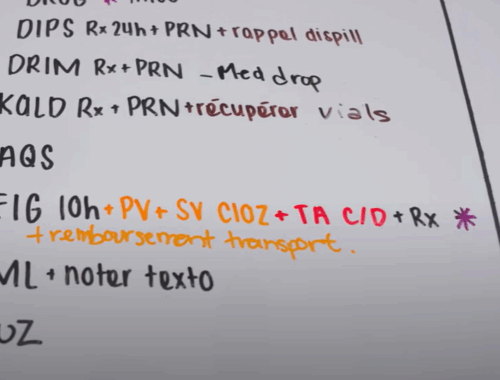 DIPS Rx 24h + PRN + rappel dispill
DRIM Rx + PRN - Med drop
KALD Rx + PRN + récupérer vials
AQS
FIG 10h + PV + SV CLOZ + TA C/D + Rx *
+ remboursement transport.
ML + noter texto